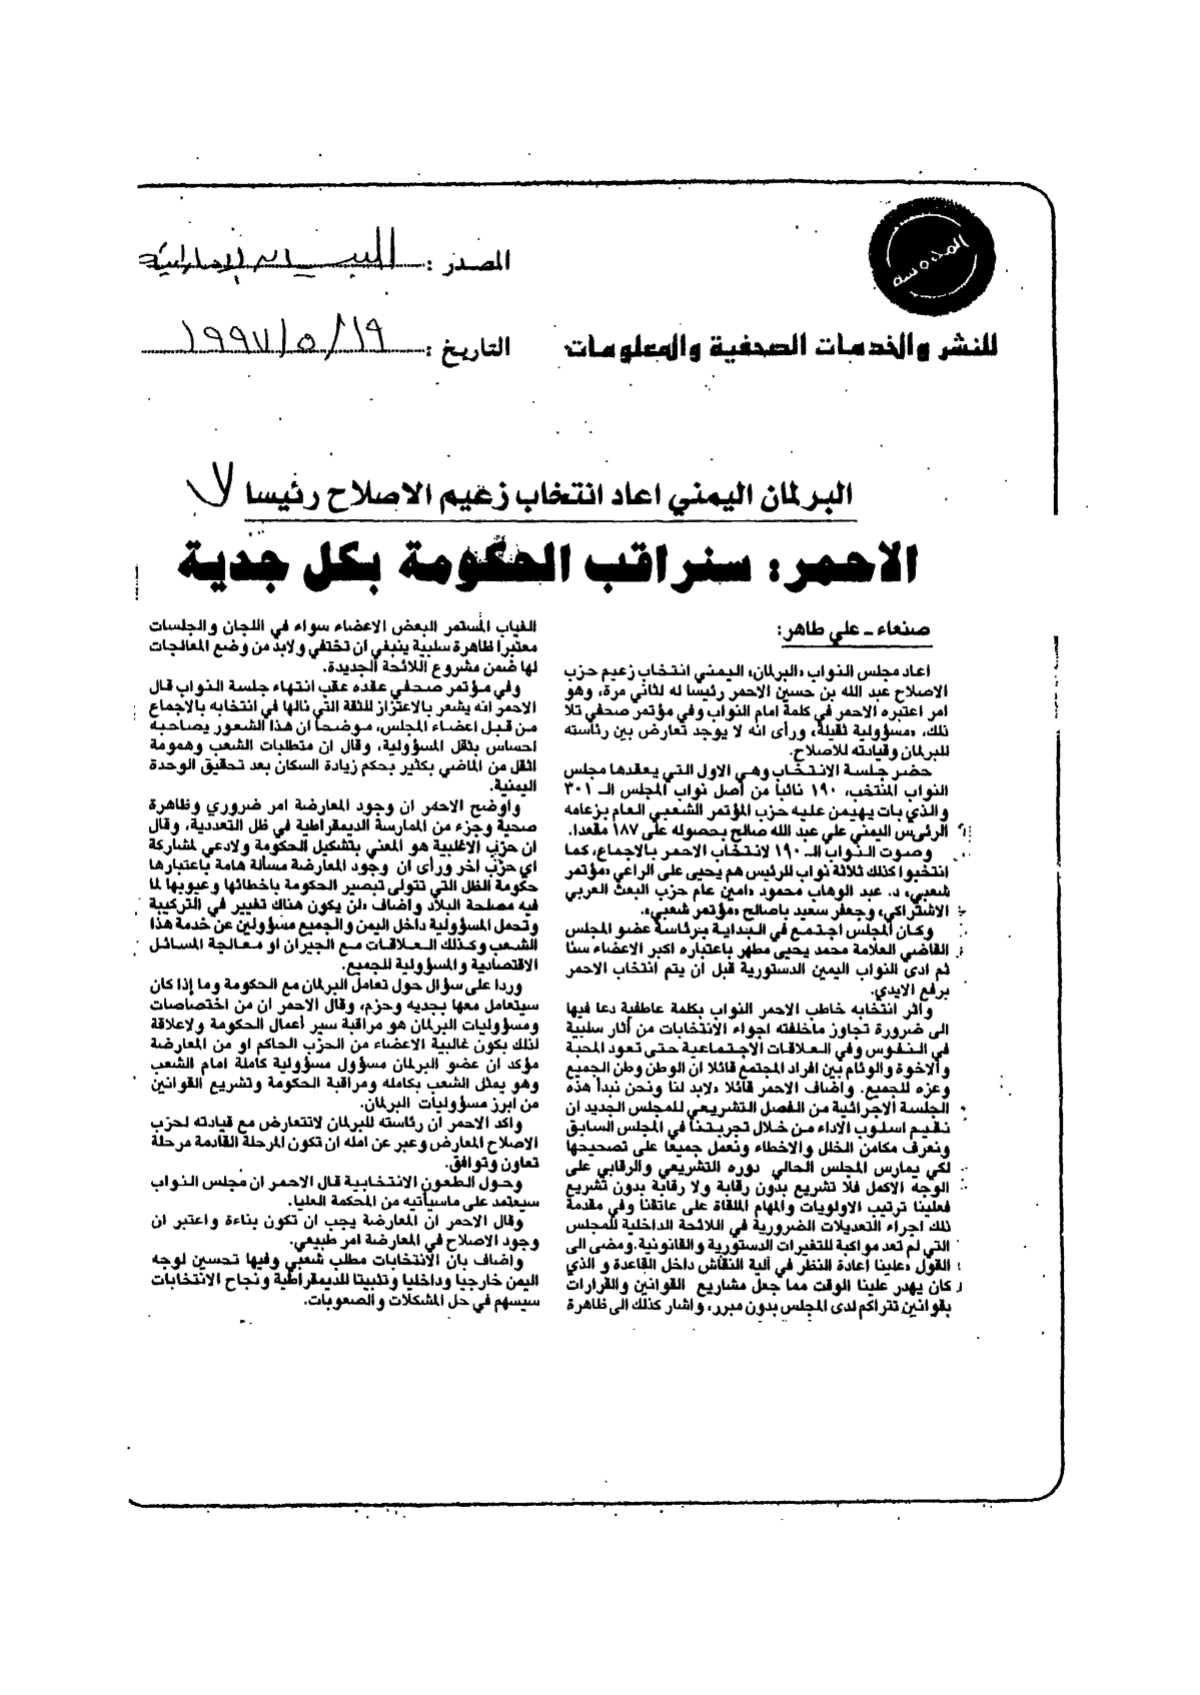 المدوسة
للنشر والخدمات الصحفية والمعلومات
المصدر : البيان الإماراتية
التاريخ : ١٩٩٧/٥/١٩
البرلمان اليمني اعاد انتخاب زعيم الاصلاح رئيسا
الاحمر: سنراقب الحكومة بكل جدية
صنعاء ـ علي طاهر:
اعاد مجلس النواب «البرلمان» اليمني انتخاب زعيم حزب
الاصلاح عبد الله بن حسين الاحمر رئيسا له لثاني مرة، وهو
امر اعتبره الاحمر في كلمة امام النواب وفي مؤتمر صحفي تلا
ذلك، «مسؤولية ثقيلة» ورأى انه لا يوجد تعارض بين رئاسته
للبرلمان وقيادته للاصلاح.
حضر جلسة الانتخاب وهي الاول التي يعقدها مجلس
النواب المنتخب، ١٩٠ نائبا من أصل نواب المجلس الـ ٣٠١
والذي بات يهيمن عليه حزب المؤتمر الشعبي العام بزعامه
الرئيس اليمني علي عبد الله صالح بحصوله على ١٨٧ مقعدا.
وصوت النواب الـ ١٩٠ لانتخاب الاحمر بالاجماع، كما
انتخبوا كذلك ثلاثة نواب للرئيس هم يحيى على الراعي «مؤتمر
شعبي» د. عبد الوهاب محمود «امين عام حزب البعث العربي
الاشتراكي» وجعفر سعيد باصالح «مؤتمر شعبي».
وكان المجلس اجتمع في البداية برئاسة عضو المجلس
القاضي العلامة محمد يحيى مطهر باعتباره اكبر الاعضاء سنا
ثم ادى النواب اليمين الدستورية قبل ان يتم انتخاب الاحمر
برفع الايدي.
واثر انتخابه خاطب الاحمر النواب بكلمة عاطفية دعا فيها
الى ضرورة تجاوز ماخلفته اجواء الانتخابات من أثار سلبية
في النفوس وفي العلاقات الاجتماعية حتى تعود المحبة
والاخوة والوئام بين افراد المجتمع قائلا ان الوطن وطن الجميع
وعزه للجميع. واضاف الاحمر قائلا «لابد لنا ونحن نبدأ هذه
الجلسة الاجرائية من الفصل التشريعي للمجلس الجديد ان
نقيم اسلوب الاداء من خلال تجربتنا في المجلس السابق
ونعرف مكامن الخلل والاخطاء ونعمل جميعا على تصحيحها
لكي يمارس المجلس الحالي دوره التشريعي والرقابي على
الوجه الاكمل فلا تشريع بدون رقابة ولا رقابة بدون تشريع
فعلينا ترتيب الاولويات والمهام الملقاة على عاتقنا وفي مقدمة
ذلك اجراء التعديلات الضرورية في اللائحة الداخلية للمجلس
التي لم تعد مواكبة للتغيرات الدستورية والقانونية. ومضى الى
القول «علينا إعادة النظر في آلية النقاش داخل القاعدة و الذي
كان يهدر علينا الوقت مما جعل مشاريع القوانين والقرارات
بقوانين تتراكم لدى المجلس بدون مبرر، و اشار كذلك الى ظاهرة
الغياب المستمر البعض الاعضاء سواء في اللجان والجلسات
معتبرا ظاهرة سلبية ينبغي ان تختفي ولابد من وضع المعالجات
لها ضمن مشروع اللائحة الجديدة.
وفي مؤتمر صحفي عقده عقب انتهاء جلسة النواب قال
الاحمر انه يشعر بالاعتزاز للثقة التي نالها في انتخابه بالاجماع
من قبل اعضاء المجلس، موضحا ان هذا الشعور يصاحبه
احساس بثقل المسؤولية، وقال ان متطلبات الشعب وهمومة
اثقل من الماضي بكثير بحكم زيادة السكان بعد تحقيق الوحدة
اليمنية.
واوضح الاحمر ان وجود المعارضة امر ضروري وظاهرة
صحية وجزء من الممارسة الديمقراطية في ظل التعددية، وقال
ان حزب الاغلبية هو المعني بتشكيل الحكومة ولادعي لمشاركة
اي حزب اخر ورأى ان وجود المعارضة مسألة هامة باعتبارها
حكومة الظل التي تتولى تبصير الحكومة باخطائها وعيوبها لما
فيه مصلحة البلاد واضاف «لن يكون هناك تغيير في التركيبة
وتحمل المسؤولية داخل اليمن والجميع مسؤولين عن خدمة هذا
الشعب وكذلك العلاقات مع الجيران او معالجة المسائل
الاقتصادية و المسؤولية للجميع.
وردا على سؤال حول تعامل البرلمان مع الحكومة وما إذا كان
سيتعامل معها بجديه وحزم، وقال الاحمر ان من اختصاصات
ومسؤوليات البرلمان هو مراقبة سير أعمال الحكومة ولاعلاقة
لذلك بكون غالبية الاعضاء من الحزب الحاكم او من المعارضة
مؤكد ان عضو البرلمان مسؤول مسؤولية كاملة امام الشعب
وهو يمثل الشعب بكامله ومراقبة الحكومة وتشريع القوانين
من ابرز مسؤوليات البرلمان.
واكد الاحمر ان رئاسته للبرلمان لاتتعارض مع قيادته لحزب
الاصلاح المعارض وعبر عن امله ان تكون المرحلة القادمة مرحلة
تعاون وتوافق.
وحول الطعون الانتخابية قال الاحمر ان مجلس النواب
سيعتمد على ماسيأتيه من المحكمة العليا.
وقال الاحمر ان المعارضة يجب ان تكون بناءة واعتبر ان
وجود الاصلاح في المعارضة امر طبيعي.
واضاف بان الانتخابات مطلب شعبي وفيها تحسين لوجه
اليمن خارجيا وداخليا وتثبيتا للديمقراطية ونجاح الانتخابات
سيسهم في حل المشكلات و الصعوبات.